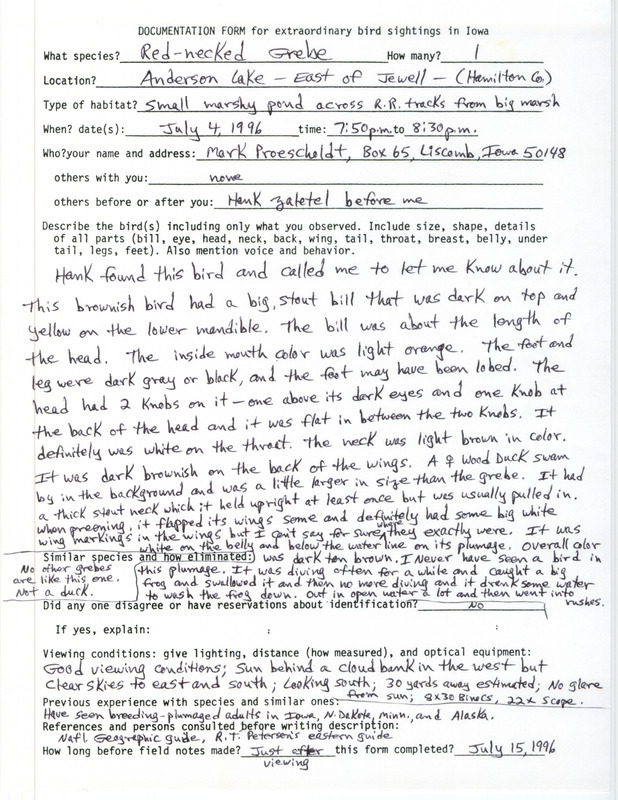 DOCUMENTATION FORM for extraordinary bird sightings in Iowa
What species? Red-necked Grebe How many? 1
Location? Anderson Lake - East of Jewell - (Hamilton Co.)
Type of habitat? Small marshy pond across R.R. tracks from big marsh
When? date(s): July 4, 1996 time: 7:50 p.m. to 8:30 p.m.
Who?your name and address: Mark Proescholdt, Box 65, Liscomb, Iowa 50148
others with you: none
others before or after you: Hank Zaletel before me
Describe the bird(s) including only what you observed. Include size, shape, details
of all parts (bill, eye, head, neck, back, wing, tail, throat, breast, belly, under
tail, legs, feet). Also mention voice and behavior.
Hank found this bird and called me to let me know about it.
This brownish bird had a big, stout bill that was dark on top and
yellow on the lower mandible. The bill was about the length of
the head. The inside mouth color was light orange. The foot and
leg were dark gray or black, and the foot may have been lobed. The
head had 2 knobs on it - one above its dark eyes and one knob at
the back of the head and it was flat in between the two knobs. It
definitely was white on the throat. The neck was light brown in color.
It was dark brownish on the back of the wings. A ♀ Wood Duck swam
by in the background and was a little larger in size than the grebe. It had
a thick stout neck which it held upright at least once but was usually pulled in.
When preening, it flapped its wings some and definitely had some big white
wing markings in the wings but I can't say for sure where they exactly were. It was
white on the belly and below the water line on its plumage. Overall color
Similar species and how eliminated: was dark tan brown. I never have seen a bird in
No other grebes are like this one. Not a duck.
this plumage. It was diving often for a while and caught a big
frog and swallowed it and then no more diving and it drank some water
to wash the frog down. Out in open water a lot and then went into
rushes.
Did any one disagree or have reservations about identification? No
If yes, explain:
Viewing conditions: give lighting, distance (how measured), and optical equipment:
Good viewing conditions; Sun behind a cloud bank in the west but
clear skies to east and south; Looking south; 30 yards away estimated; No glare
from sun; 8x30 Binocs, 22x Scope.
Previous experience with species and similar ones:
Have seen breeding-plumaged adults in Iowa, N. Dakota, Minn., and Alaska.
References and persons consulted before writing description:
Natl. Geographic guide, R.T. Peterson's eastern guide
How long before field notes made? Just after viewing this form completed? July 15, 1996